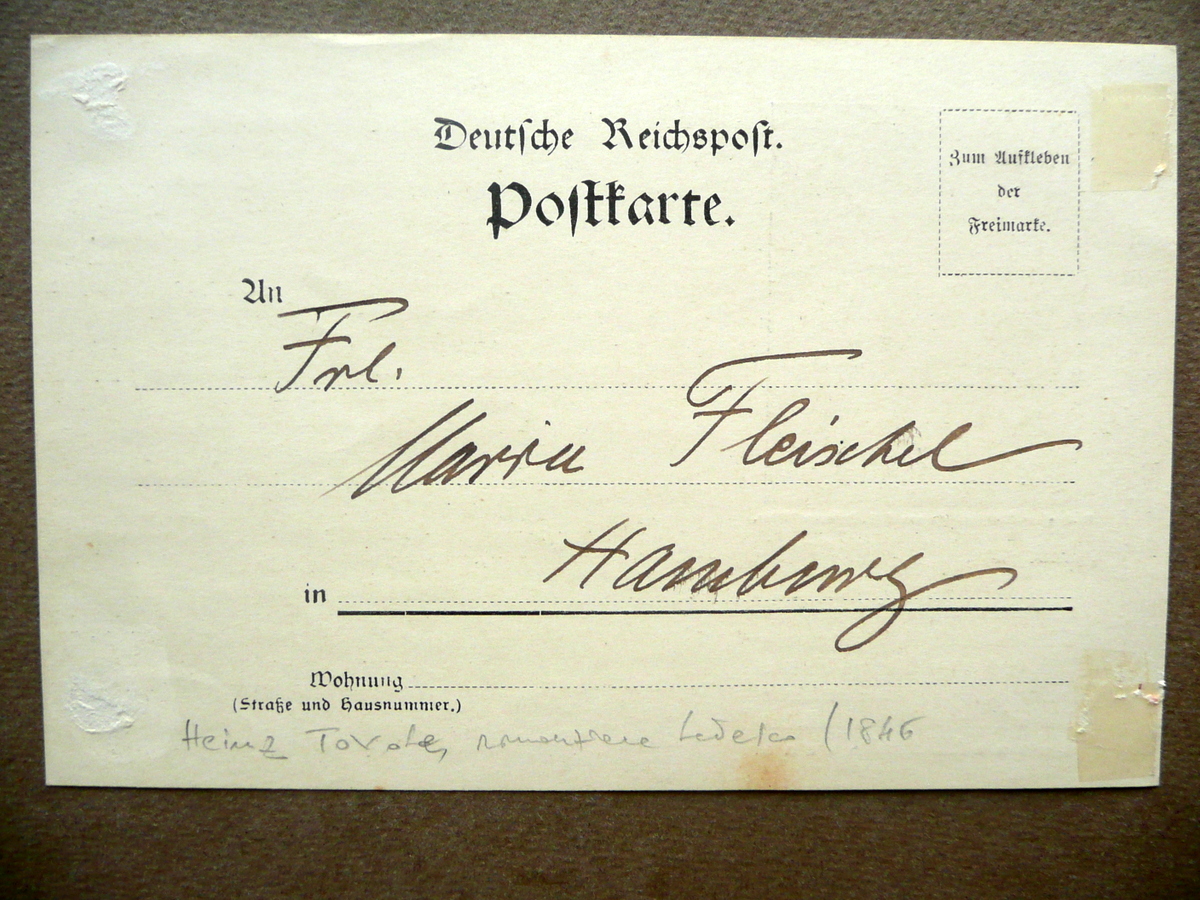 Deutsche Reichspost.
Postkarte.
Zum Aufkleben
der
Freimarke.
An
Frl.
Maria Fleischel
Hamburg
in
Wohnung
(Straße und Hausnummer.)
Heinz Tovote, romanziere tedesco (1846